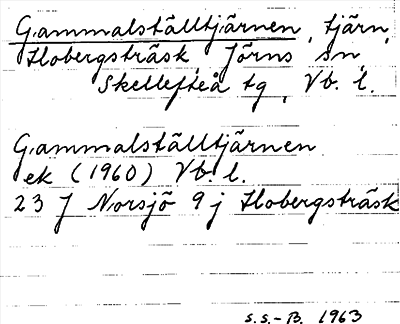 Gammalställtjärnen, tjärn,
Hobergsträsk, Jörns sn,
Skellefteå tg, Vb. l.
Gammalställtjärnen
ek (1960) Vb l.
23 J Norsjö 9 j Hobergsträsk
S.S.-B. 1963